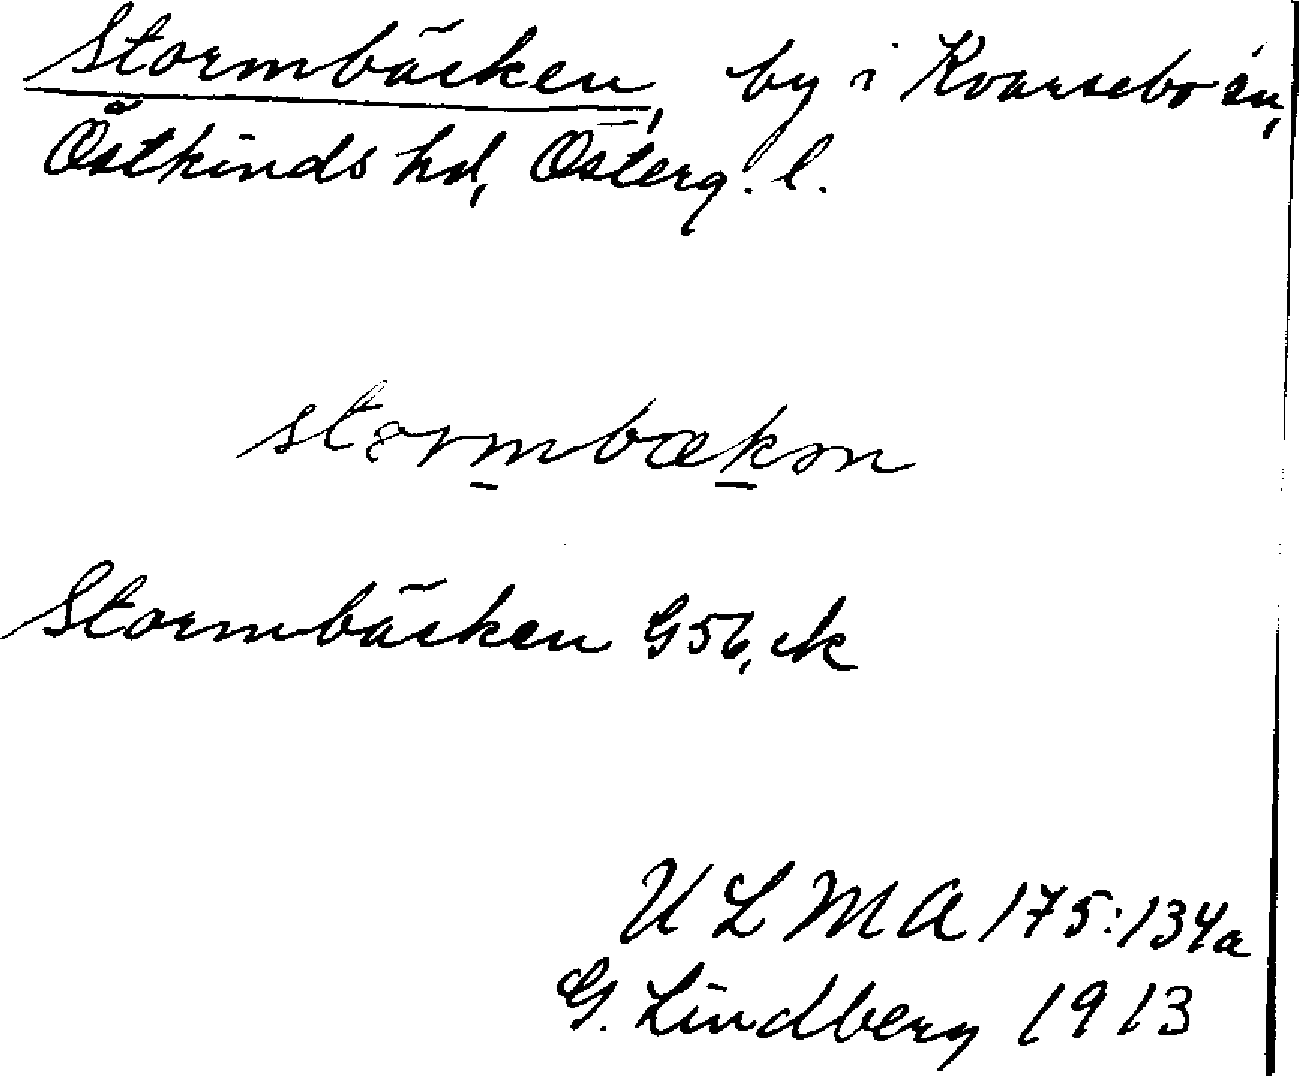 Stormbäcken, by i Kvarsebo sn,
Östkinds hd, Österg. l.
stormbækən
Stormbäcken G 56, ek
ULMA 175:134a
G. Lindberg 1913